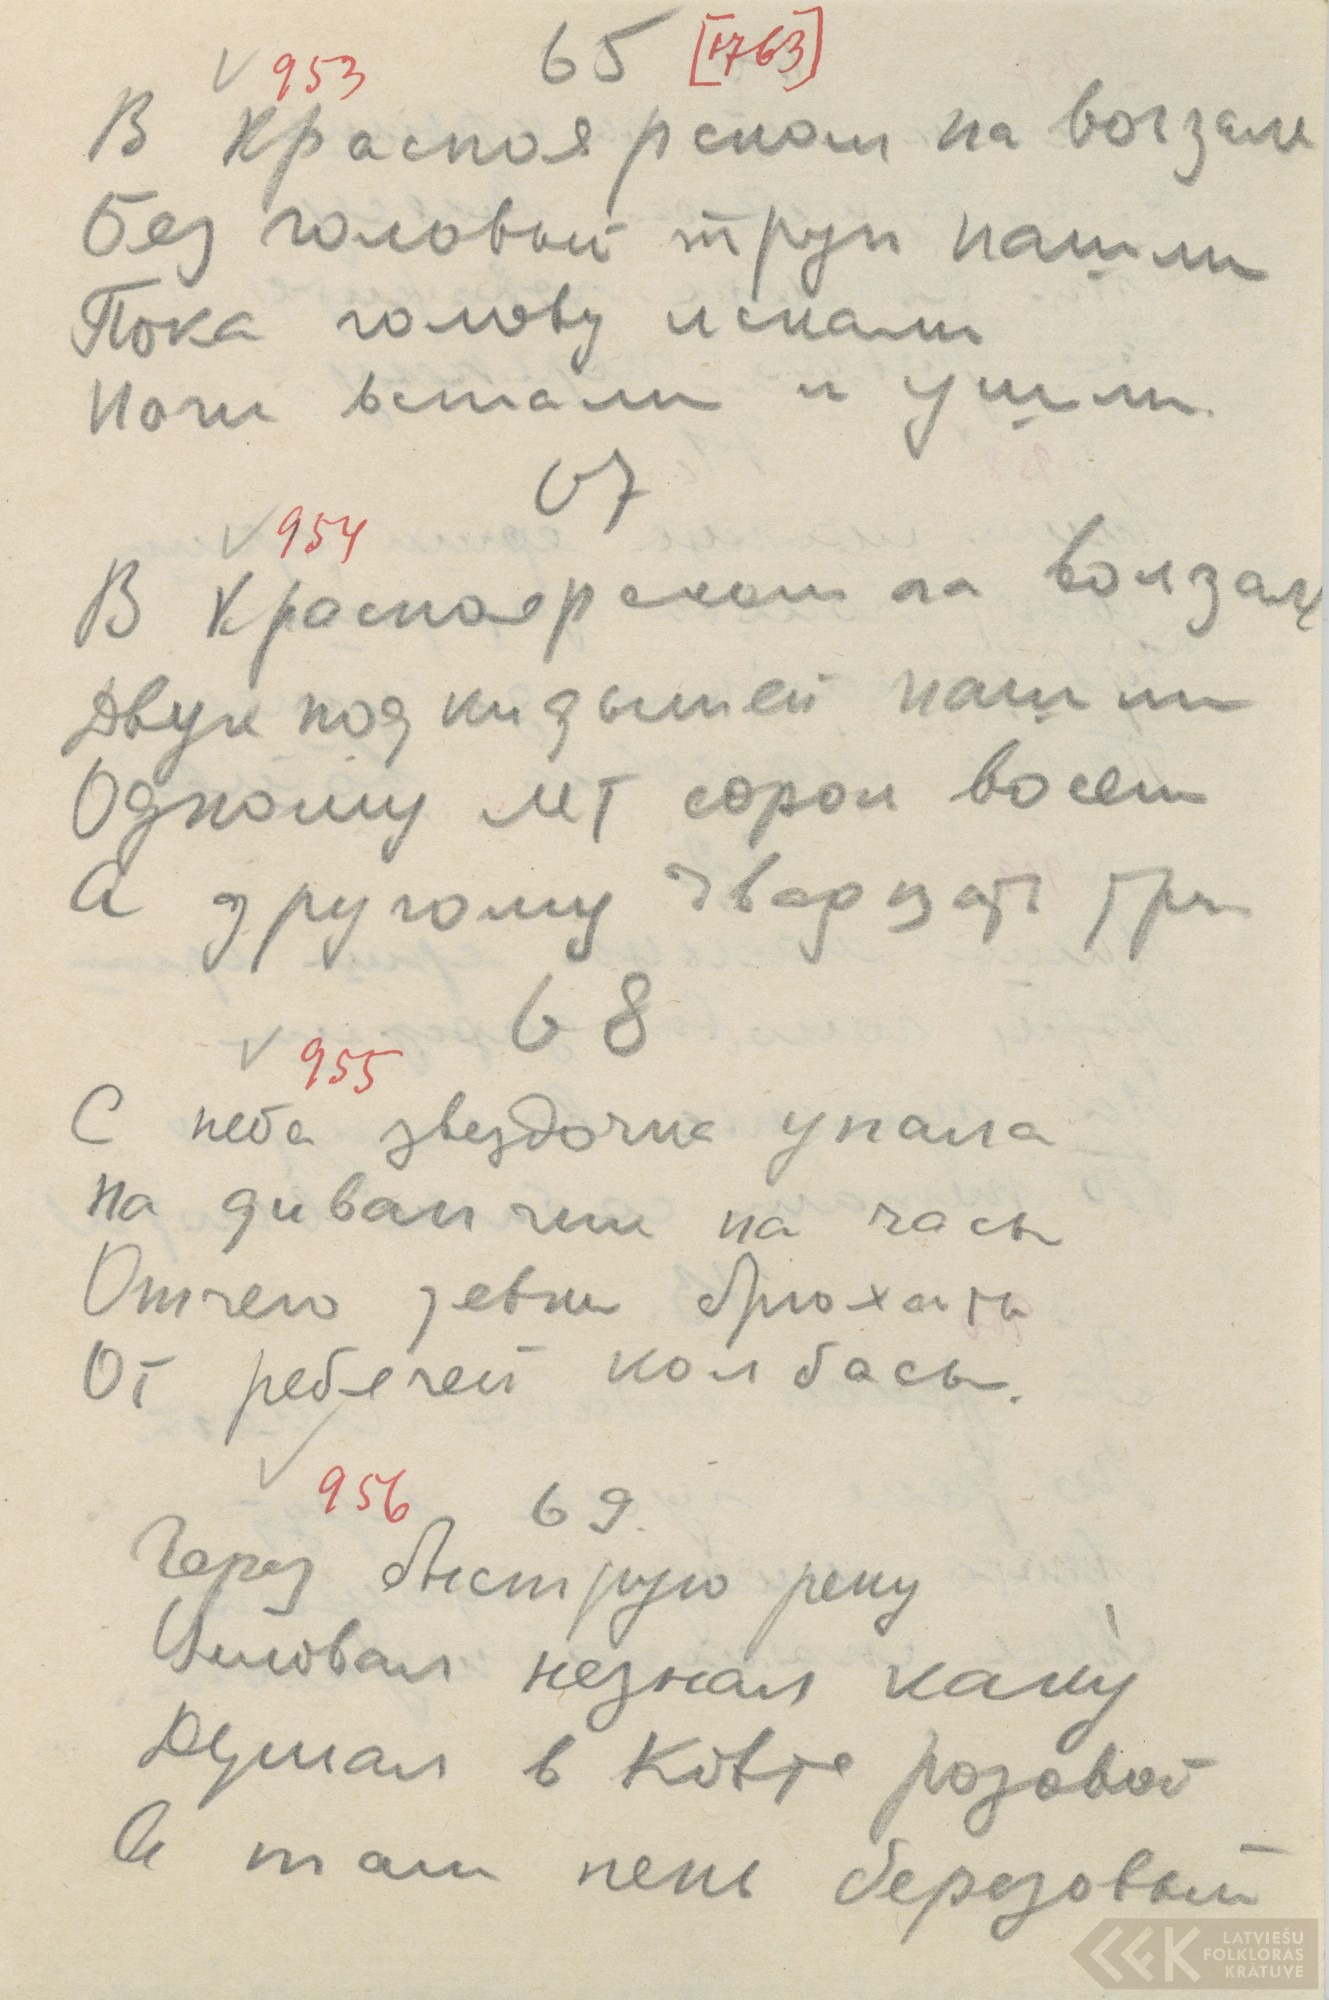 953 65 [1763]
В Красноярском на вогзале
Без головый труп нашли
Пока голову искали
Ноги встали и ушли.
67
954
В Красноярском на волзале
Двух подкидышей нашли
Одному лет сорок восем
А другому
три
68
955
С неба звездочка упала
На диванчик на часы
Отчего девки брюхаты
От ребячей колбасы.
956 69.
Через быструю реку
Циловал незнал каку
Думал в Ковте розовой
А там пень березовый
LATVIEŠU
FOLKLORAS
KRĀTUVE